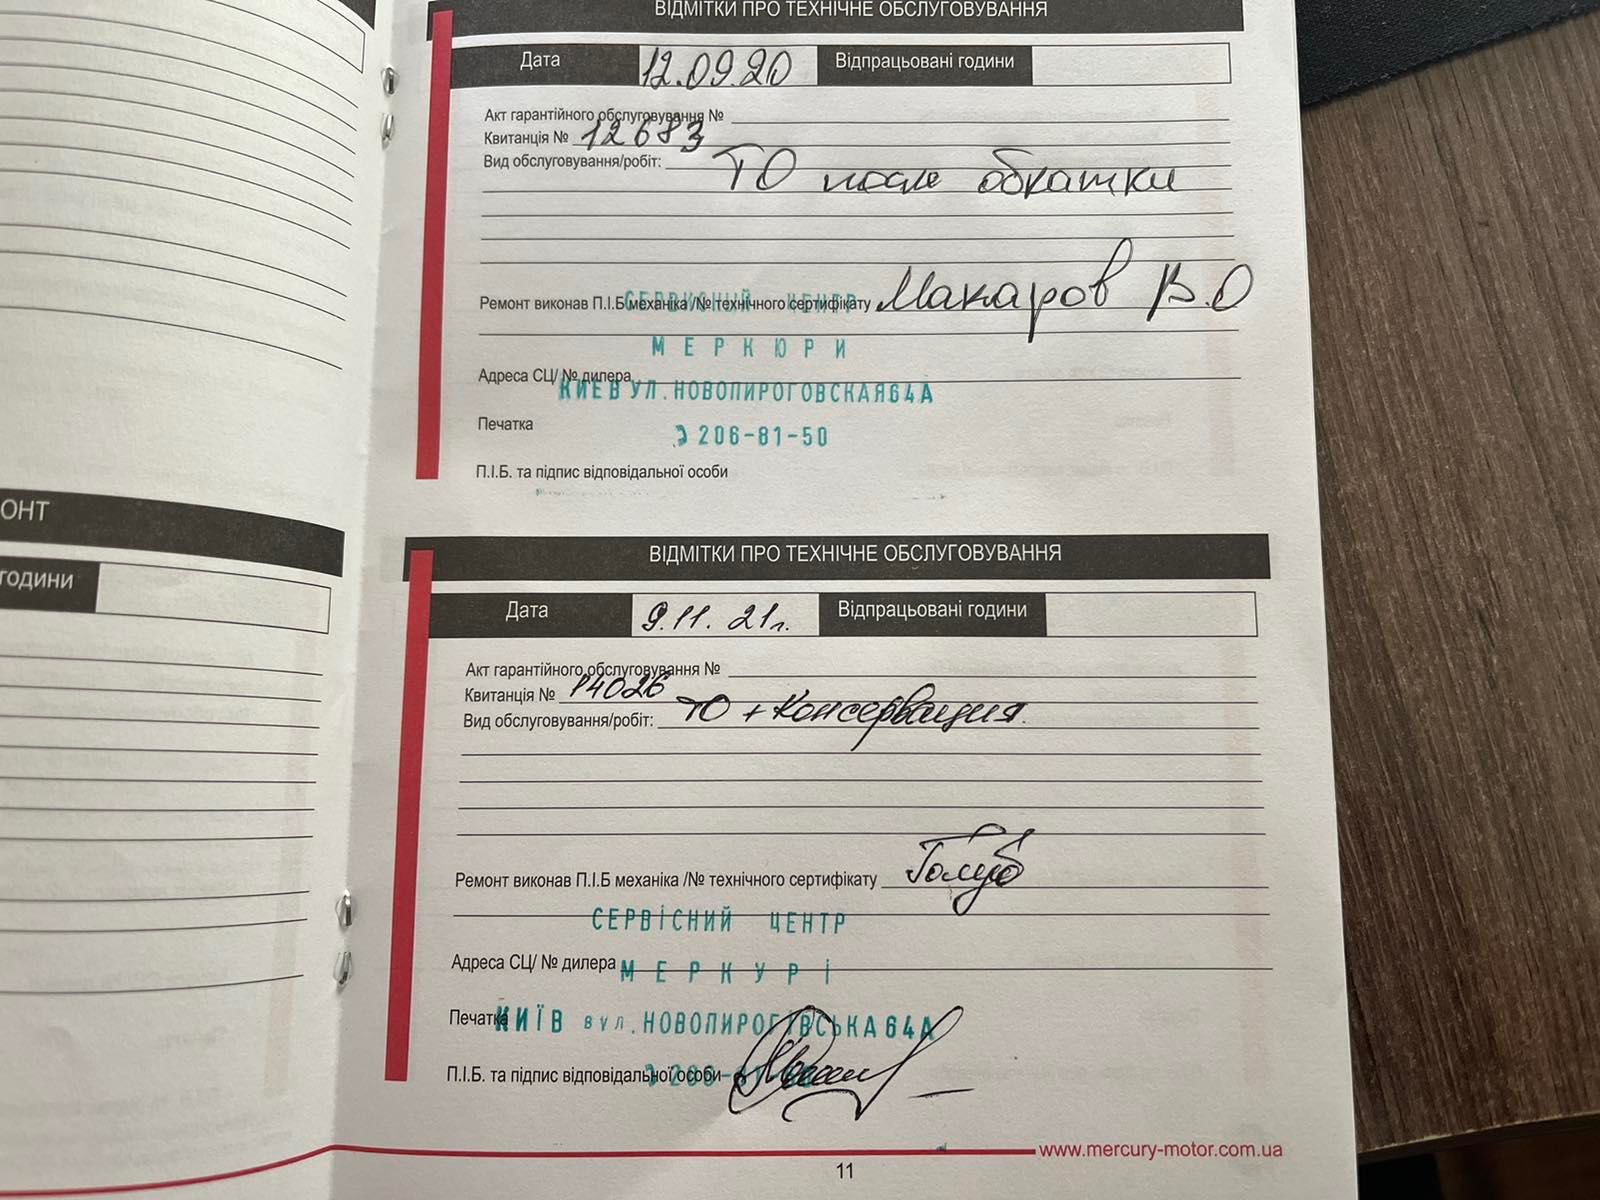 ОНТ
години
ВІДМІТКИ ПРО ТЕХНІЧНЕ ОБСЛУГОВУВАННЯ
Дата 12.09.20 Відпрацьовані години
Акт гарантійного обслуговування №
Квитанція № 12683
Вид обслуговування/робіт: ТО после обкатки
Ремонт виконав П.І.Б механіка /№ технічного сертифікату Макаров В.О
СЕРВИСНЫЙ ЦЕНТР
МЕРКЮРИ
Адреса СЦ/ № дилера
КИЕВ УЛ.НОВОПИРОГОВСКАЯ64А
Печатка
206-81-50
П.І.Б. та підпис відповідальної особи
ВІДМІТКИ ПРО ТЕХНІЧНЕ ОБСЛУГОВУВАННЯ
Дата 9.11.21г. Відпрацьовані години
Акт гарантійного обслуговування №
Квитанція № 14026
Вид обслуговування/робіт: ТО + Консервация.
Ремонт виконав П.І.Б механіка /№ технічного сертифікату Голуб
СЕРВІСНИЙ ЦЕНТР
Адреса СЦ/ № дилера
МЕРКУРІ
Печатка
КИЇВ вул.НОВОПИРОГІВСЬКА64А
П.І.Б. та підпис відповідальної особи
www.mercury-motor.com.ua
11